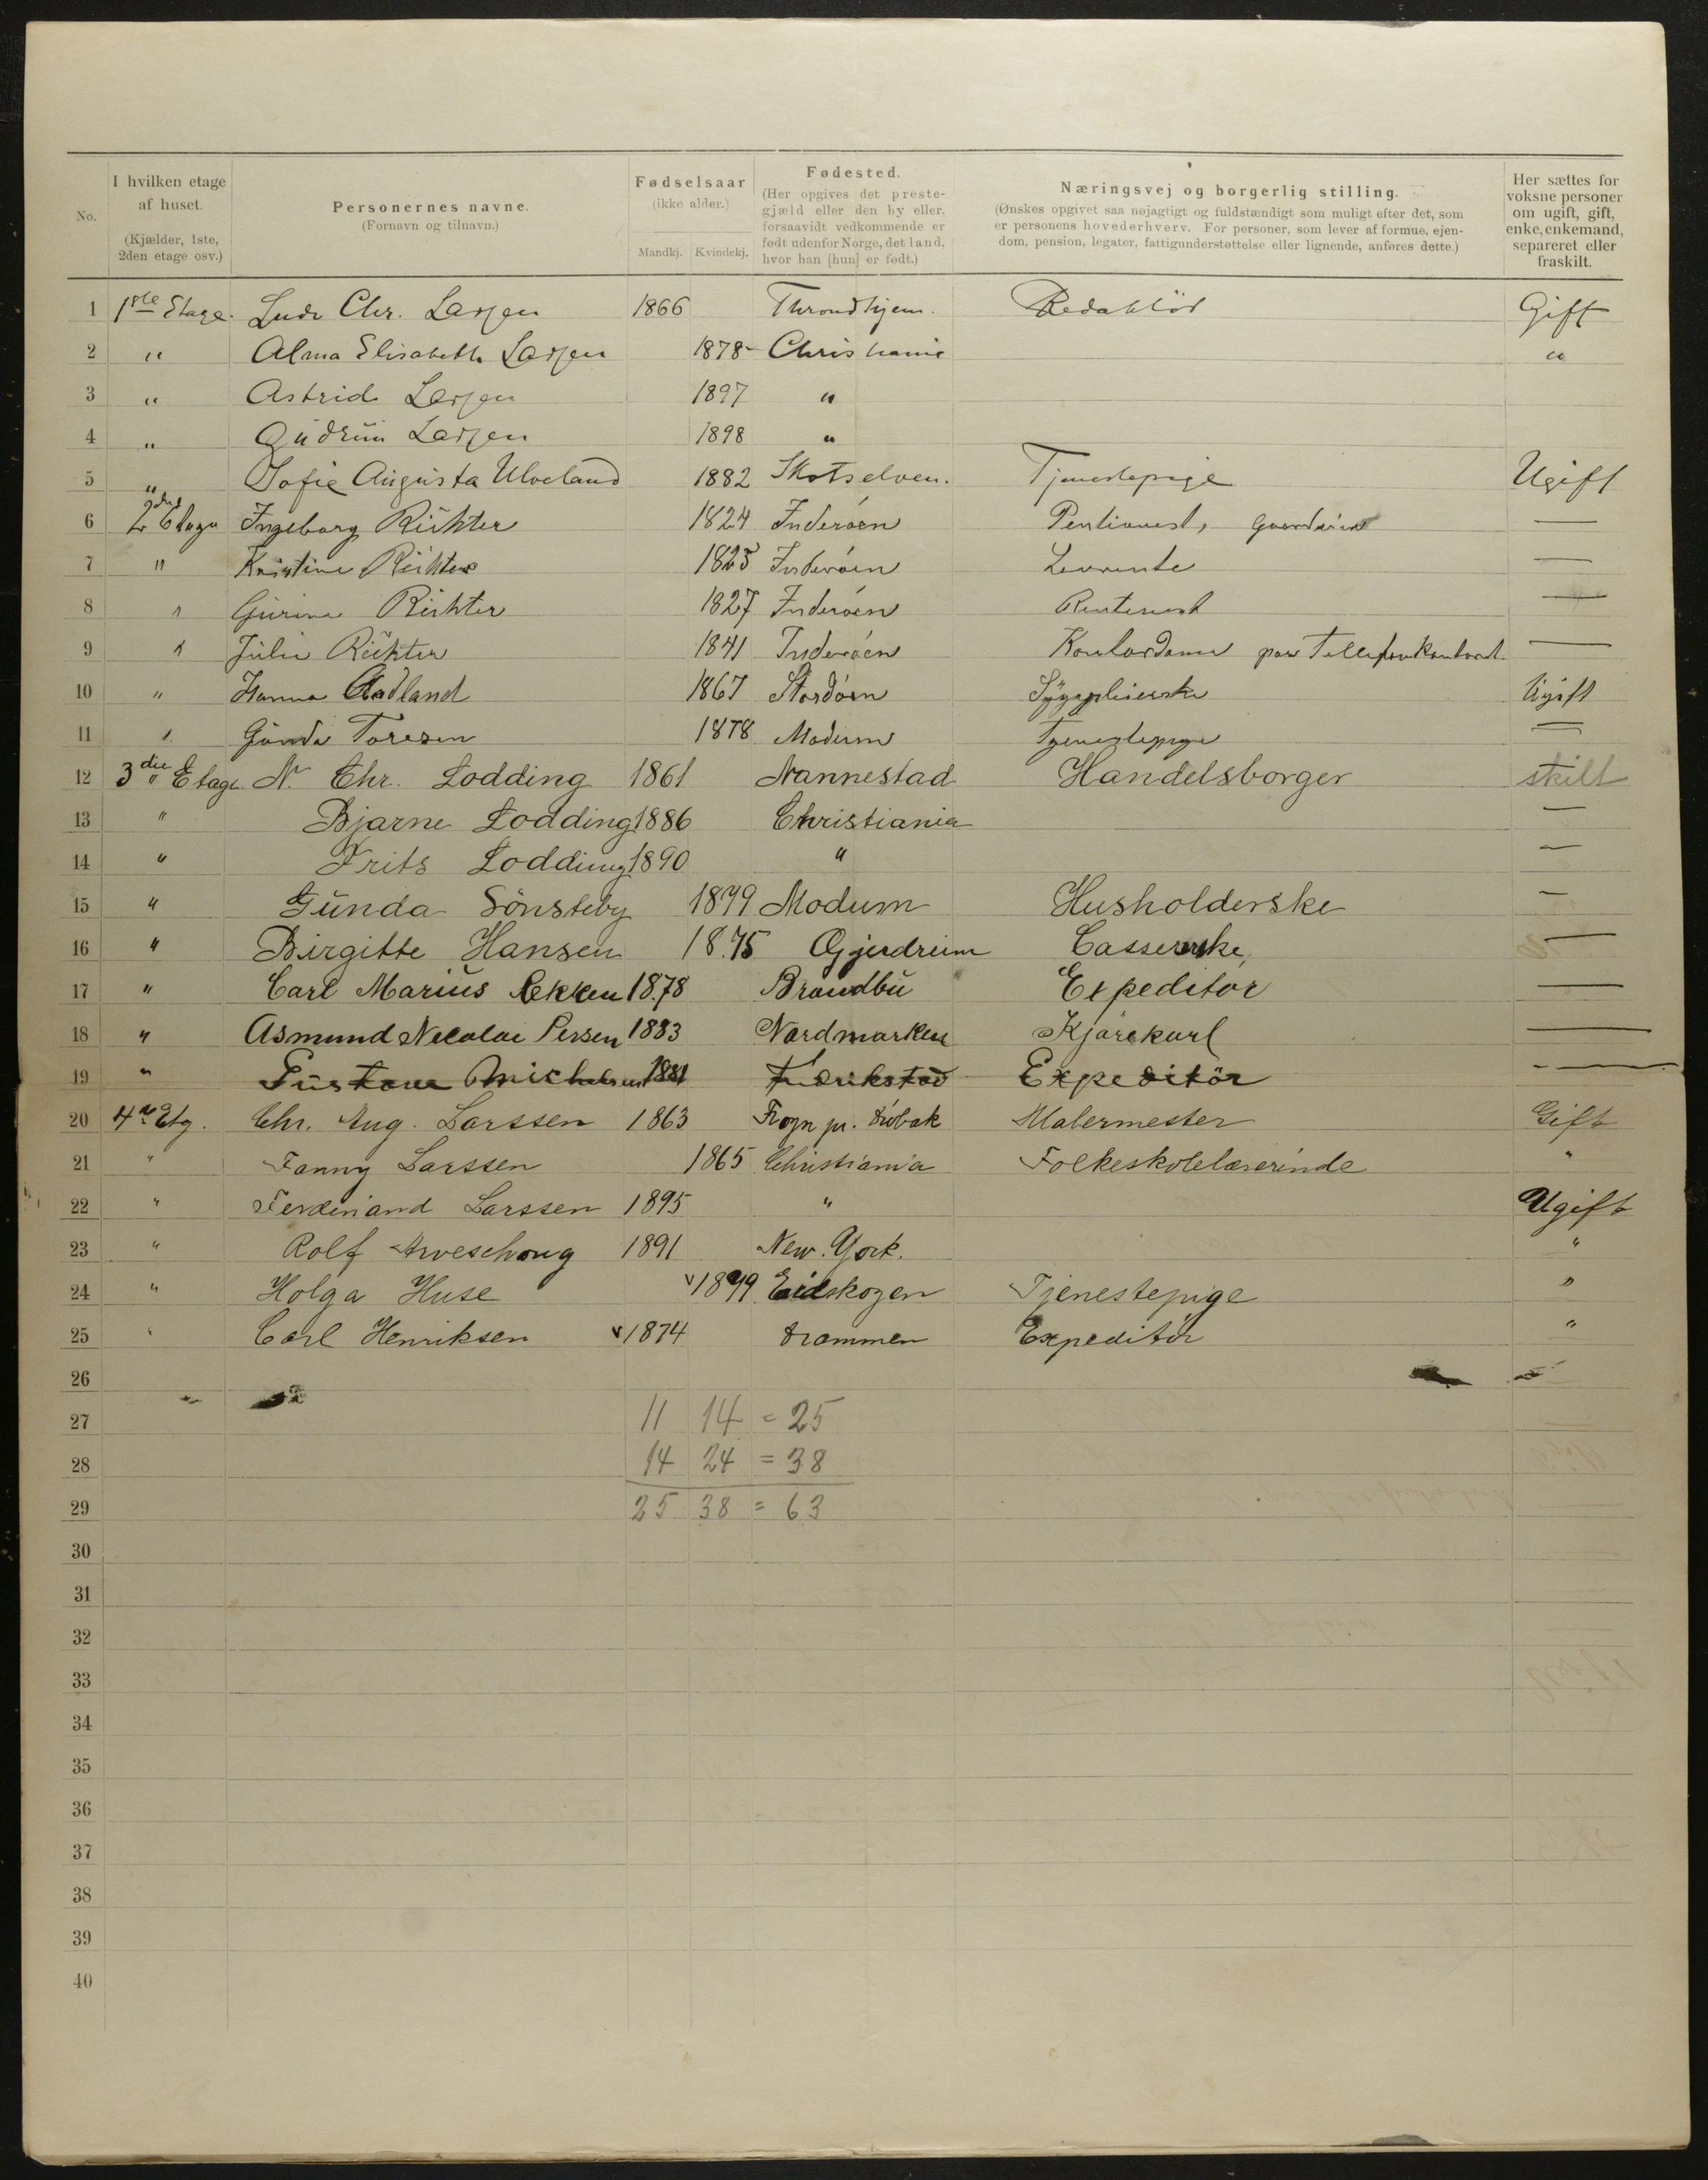 No.
I hvilken etage af huset. (Kjælder, 1ste, 2den etage osv.)
Personernes navne. (Fornavn og tilnavn.)
Fødselsaar (ikke alder.) Mandkj. Kvindekj.
Fødested. (Her opgives det prestegjæld eller den by eller, forsaavidt vedkommende er født udenfor Norge, det land, hvor han [hun] er født.)
Næringsvej og borgerlig stilling. (Ønskes opgivet saa nøjagtigt og fuldstændigt som muligt efter det, som er personens hovederhverv. For personer, som lever af formue, ejendom, pension, legater, fattigunderstøttelse eller lignende, anføres dette.)
Her sættes for voksne personer om ugift, gift, enke, enkemand, separeret eller fraskilt.
1 1ste Etage. Ludv Chr. Larsen 1866 Throndhjem. Redaktör Gift
2 " Alma Elisabeth Larsen 1878 Christiania "
3 " Astrid Larsen 1897 "
4 " Gudrun Larsen 1898 "
5 " Sofie Augusta Ulveland 1882 Skotselven. Tjenestepige Ugift
6 2den Etage Ingeborg Richter 1824 Inderöen —
7 " Kristine Richter 1825 Inderöen Livrente —
8 " Gurine Richter 1827 Inderöen —
9 " Julie Richter 1841 Inderöen Kontordame paa Tellefonkontoret. —
10 " Hanna Aadland 1867 Stordöen Sygepleierske Ugift
11 " Gunda Toresen 1878 Modum Tjenestepige —
12 3die Etage. N. Chr. Lodding 1861 Nannestad Handelsborger skilt
13 " Bjarne Lodding 1886 Christiania —
14 " Frits Lodding 1890 " —
15 " Gunda Sönsteby 1879 Modum Husholderske —
16 " Birgitte Hansen 18.75 Gjerdrum Casserske, —
17 " Carl Marius Lekken 18.78 Brandbu Expeditör —
18 " Asmund Nicolai Persen 1883 Nordmarken Kjörekarl —
19 " Gustave Michelsen 1881 Fredrikstad Expeditör —
20 4de Etg. Chr. Aug. Larssen 1863 Frogn pr. Dröbak Malermester Gift
21 " Fanny Larssen 1865 Christiania Folkeskolelærerinde "
22 " Ferdinand Larssen 1895 " Ugift
23 " Rolf Arveschoug 1891 New. York. "
24 " Holga Huse 1879 Eidskogen Tjenestepige "
25 " Carl Henriksen 1874 Drammen Expeditör "
26
27 11 14 = 25
28 14 24 = 38
29 25 38 = 63
30
31
32
33
34
35
36
37
38
39
40